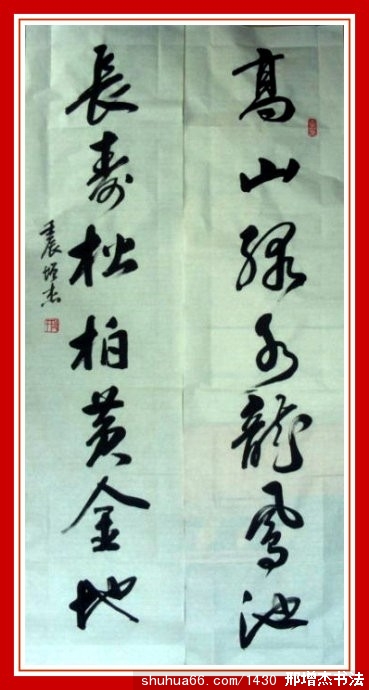 高山緑水龍鳳池
長壽松柏黄金地
壬辰增杰
shuhua66.com/1430 邢增杰书法